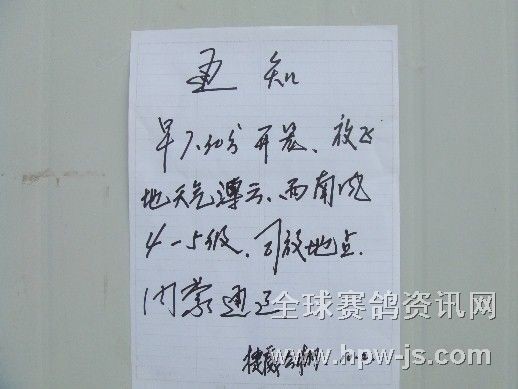 通知
早7.30分开笼、放飞
地天气薄云、西南风
4-5级、司放地点.
内蒙通辽
全球赛鸽资讯网
http://www.hpw-js.com